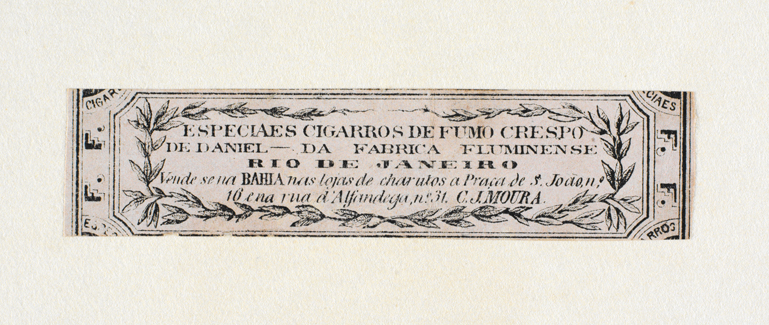 CIGAR
CIAES
F. F.
F. F.
ESPEC
RROS
ESPECIAES CIGARROS DE FUMO CRESPO
DE DANIEL — DA FABRICA FLUMINENSE
RIO DE JANEIRO
Vende se na BAHIA nas lojas de charutos a Praça de S. João, n.º
16 e na rua d'Alfandega, n.º 31. C. J. MOURA.